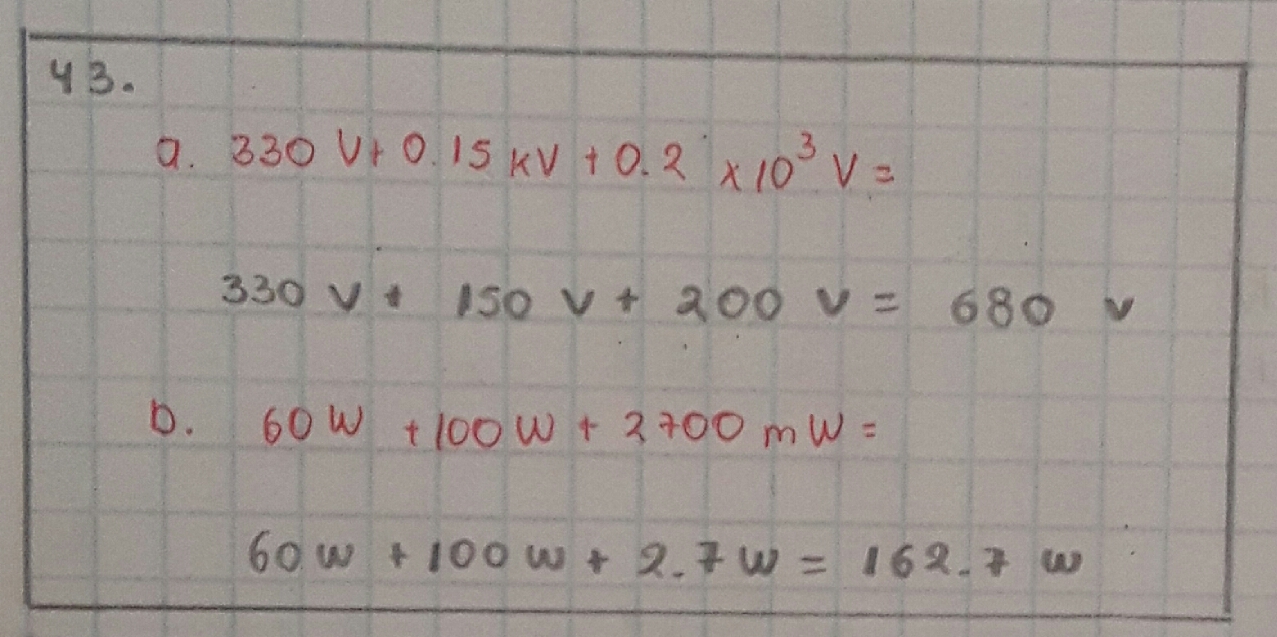 43.
a. 330 V + 0.15 kV + 0.2 x10³ V =
330 v + 150 v + 200 v = 680 v
b. 60 W + 100 W + 2700 mW =
60 w + 100 w + 2.7 w = 162.7 w